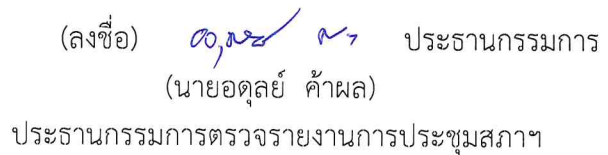 (ลงชื่อ) ประธานกรรมการ
(นายอดุลย์ ค้าผล)
ประธานกรรมการตรวจรายงานการประชุมสภาฯ